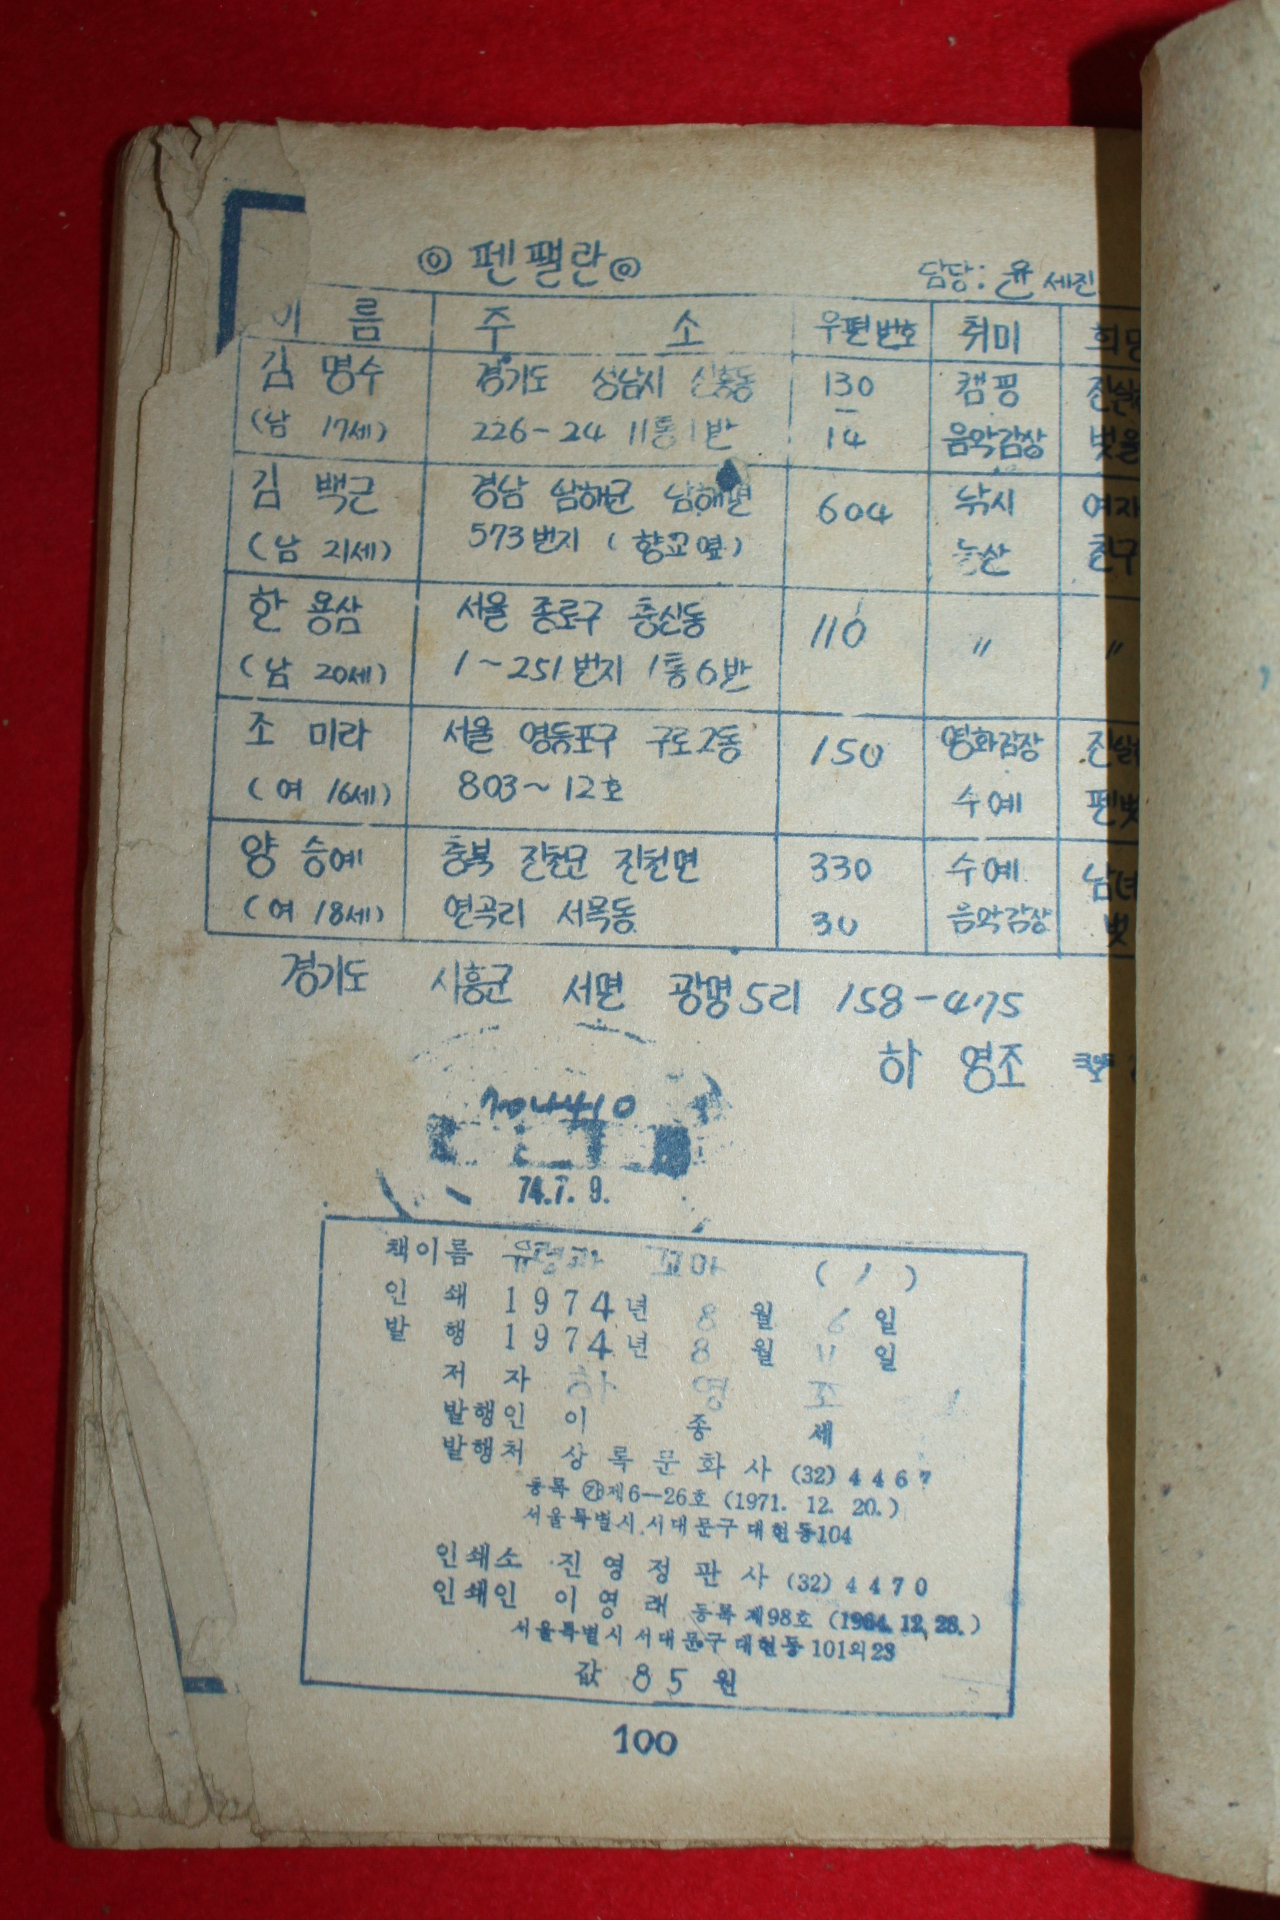 ◎ 펜팰란 ◎
담당: 윤 세진
이 름 주 소 우편번호 취미 희망
김 명수 경기도 성남시 신흥동 130 캠핑 진실한
(남 17세) 226-24 11통 1반 - 14 음악감상 벗을
김 백근 경남 남해군 남해면 604 낚시 여자
(남 21세) 573번지 (향교옆) 등산 친구
한 용삼 서울 종로구 충신동 110 〃 〃
(남 20세) 1~251번지 1통6반
조 미라 서울 영등포구 구로2동 150 영화감상
(여 16세) 803~12호 수예 펜벗
양 승예 충북 진천군 진천면 330 수예 남녀
(여 18세) 연곡리 서목동 30 음악감상 벗
경기도 시흥군 서면 광명5리 158-475
하 영조
74.7.9.
책이름 유령과 꼬마 (1)
인 쇄 1974년 8월 6일
발 행 1974년 8월 11일
저 자 하 영 조
발행인 이 종 세
발행처 상록문화사 (32) 4467
등록 ㉮제6—26호 (1971. 12. 20.)
서울특별시 서대문구 대현동104
인쇄소 진영정판사 (32) 4470
인쇄인 이영래 등록 제98호 (1964. 12. 28.)
서울특별시 서대문구 대현동 101의23
값 85원
100